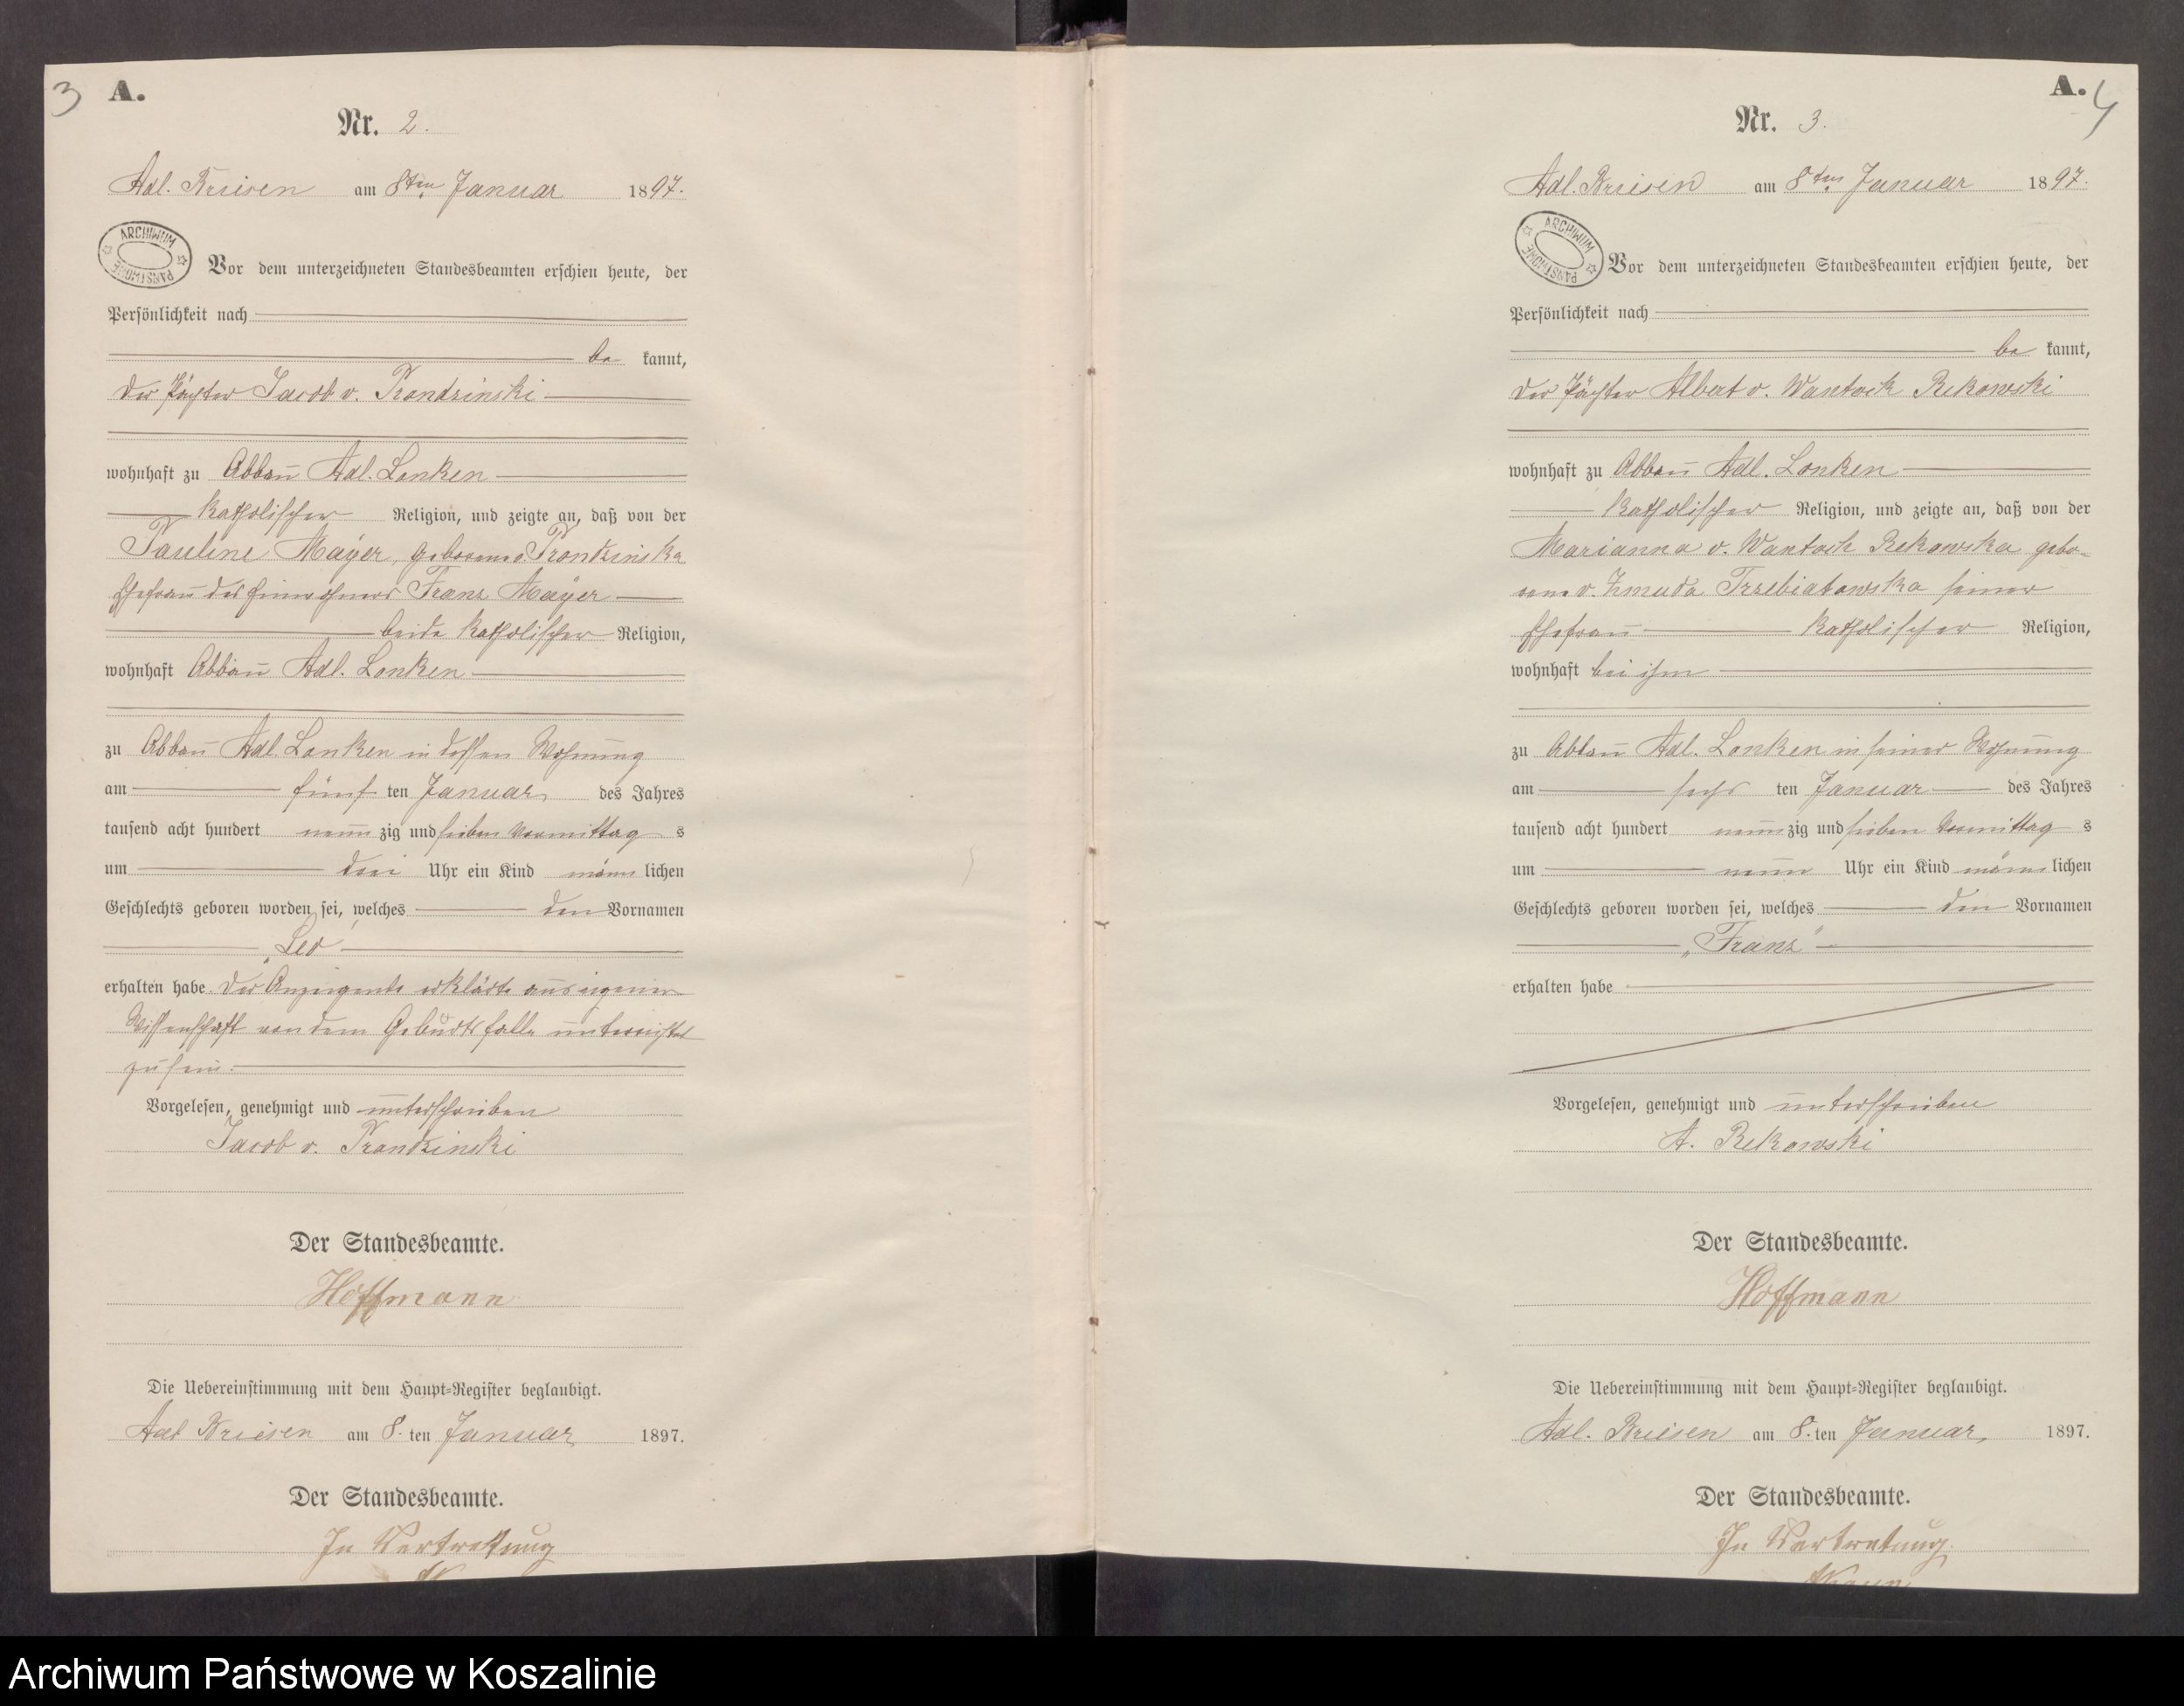 3 A.
Nr. 2.
Adl. Briesen am 8ten Januar 1897.
ARCHIWUM PAŃSTWOWE
Vor dem unterzeichneten Standesbeamten erschien heute, der
Persönlichkeit nach
be kannt,
der Pächter Jacob v. Prondzinski
wohnhaft zu Abbau Adl. Lonken
katholischer Religion, und zeigte an, daß von der
Pauline Mayer, geborene v. Prondzinska
Ehefrau des Einwohners Franz Mayer
beide katholischer Religion,
wohnhaft Abbau Adl. Lonken
zu Abbau Adl. Lonken in dessen Wohnung
am fünf ten Januar des Jahres
tausend acht hundert neun zig und sieben Vormittag s
um drei Uhr ein Kind männ lichen
Geschlechts geboren worden sei, welches den Vornamen
„Leo“
erhalten habe. Der Anzeigende erklärte aus eigener
Wissenschaft von dem Geburtsfalle unterrichtet
zu sein.
Vorgelesen, genehmigt und unterschrieben
Jacob v. Prondzinski
Der Standesbeamte.
Hoffmann
Die Uebereinstimmung mit dem Haupt=Register beglaubigt.
Adl Briesen am 8. ten Januar 1897.
Der Standesbeamte.
In Vertretung
A. 4
Nr. 3.
Adl. Briesen am 8ten Januar 1897.
ARCHIWUM PAŃSTWOWE
Vor dem unterzeichneten Standesbeamten erschien heute, der
Persönlichkeit nach
be kannt,
der Pächter Albert v. Wantoch Rekowski
wohnhaft zu Abbau Adl. Lonken
katholischer Religion, und zeigte an, daß von der
Marianna v. Wantoch Rekowska gebo-
rene v. Zmuda Trzebiatowska seiner
Ehefrau katholischer Religion,
wohnhaft bei ihm
zu Abbau Adl. Lonken in seiner Wohnung
am sechs ten Januar des Jahres
tausend acht hundert neun zig und sieben Vormittag s
um neun Uhr ein Kind männ lichen
Geschlechts geboren worden sei, welches den Vornamen
„Franz“
erhalten habe
Vorgelesen, genehmigt und unterschrieben
A. Rekowski
Der Standesbeamte.
Hoffmann
Die Uebereinstimmung mit dem Haupt=Register beglaubigt.
Adl. Briesen am 8. ten Januar 1897.
Der Standesbeamte.
In Vertretung.
Archiwum Państwowe w Koszalinie